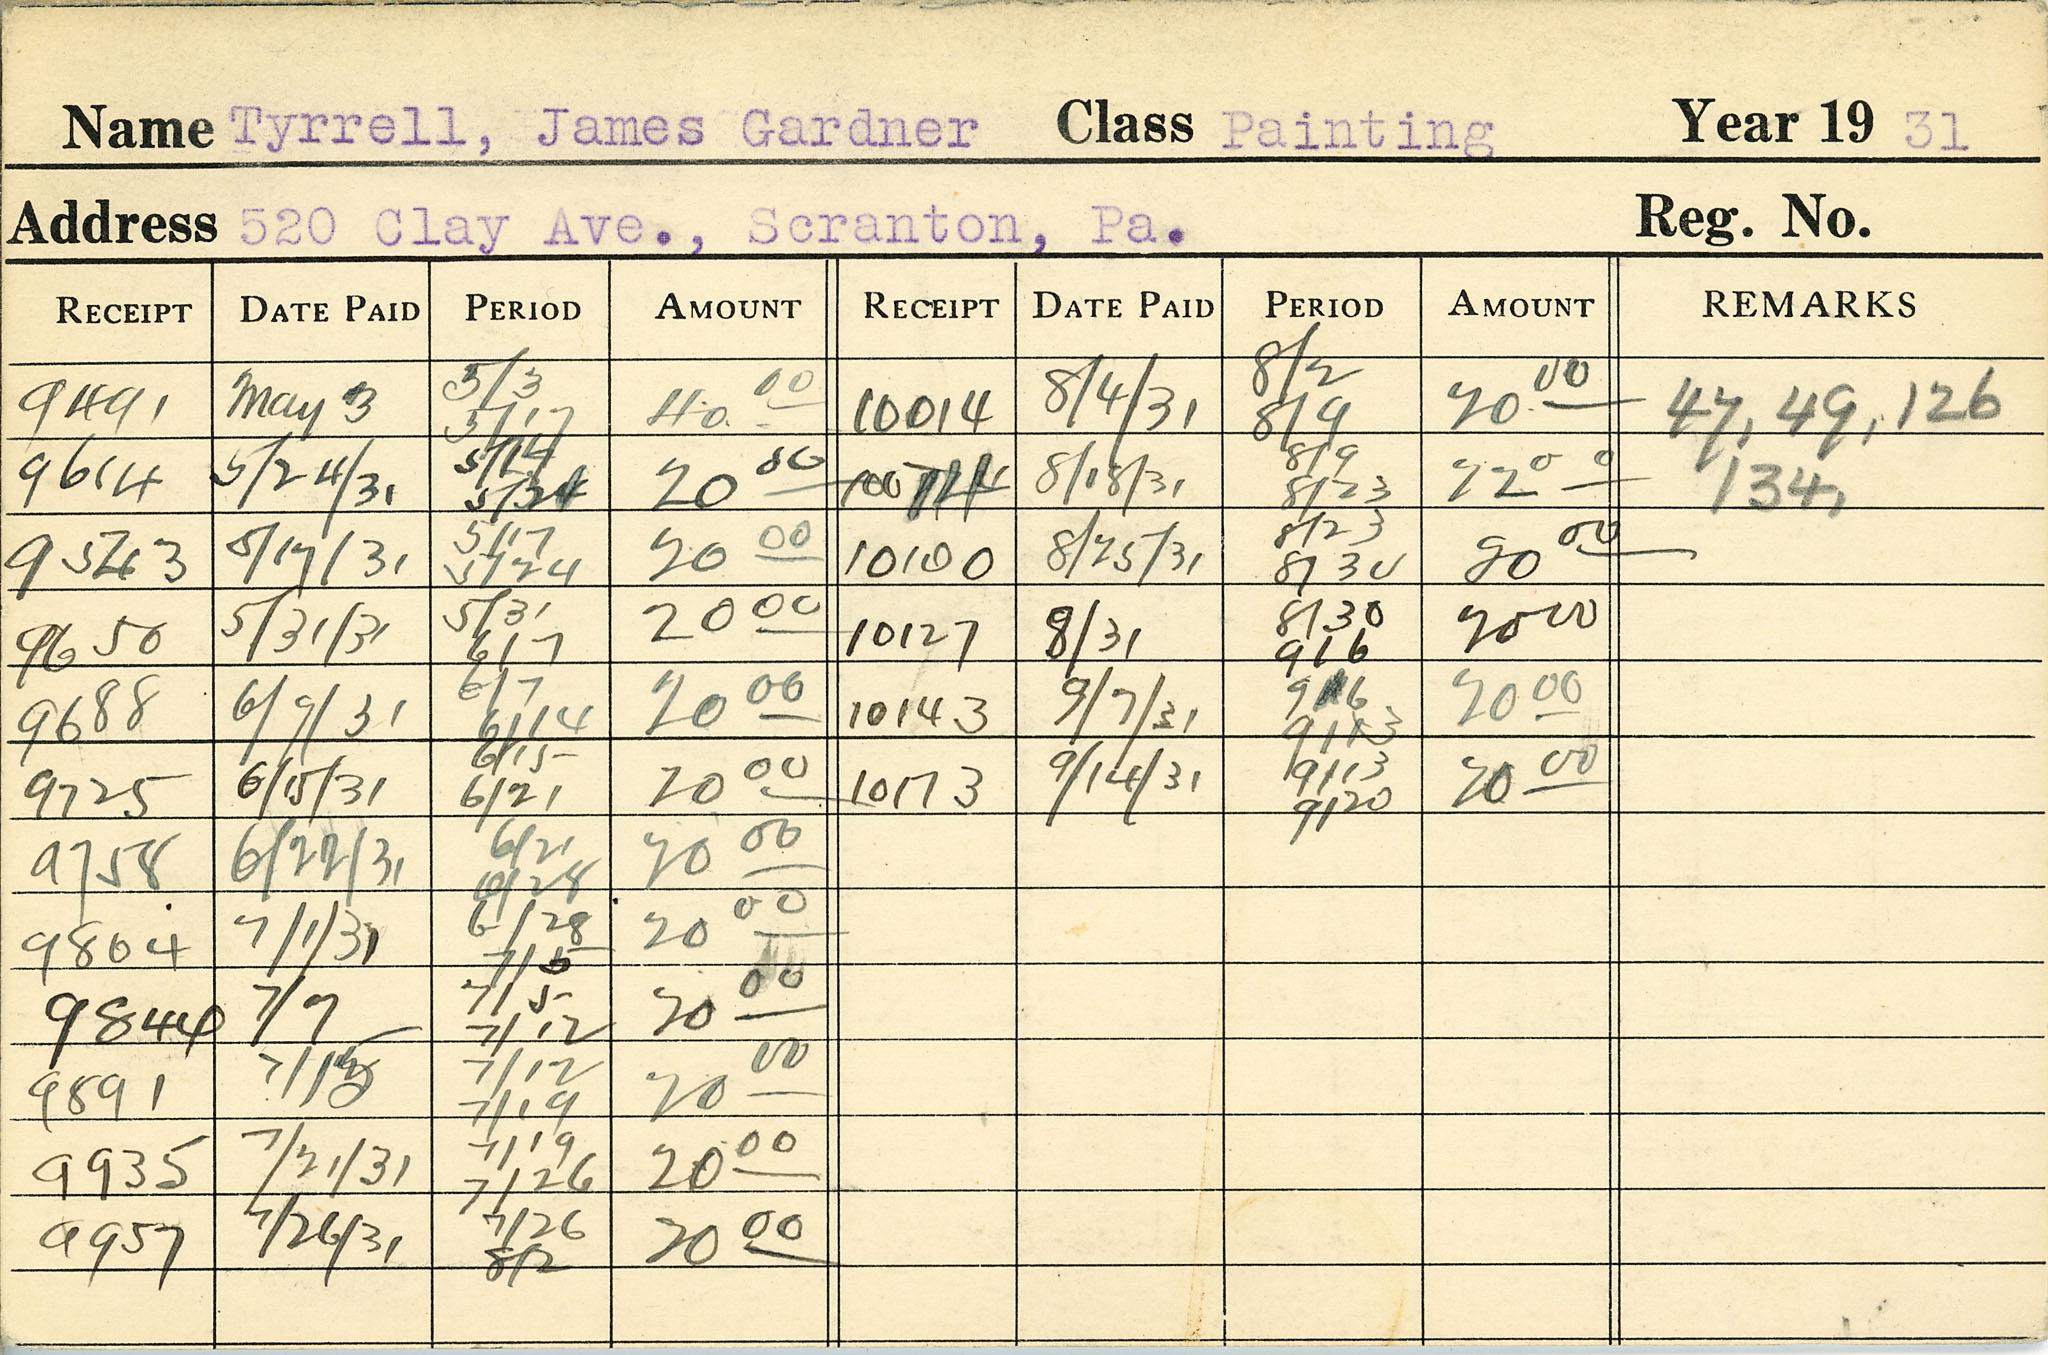 Name Tyrrell, James Gardner Class Painting Year 19 31
Address 520 Clay Ave., Scranton, Pa. Reg. No.
RECEIPT DATE PAID PERIOD AMOUNT RECEIPT DATE PAID PERIOD AMOUNT REMARKS
9491 May 3 5/3 5/17 40 00 10014 8/4/31 8/2 8/9 20 00 47, 49, 126
9614 5/24/31 20 00 8/18/31 8/9 8/23 22 00 134,
5/17/31 5/17 5/24 20 00 10100 8/25/31 8/23 8/30 20 00
9650 5/31/31 5/31 6/7 20 00 10127 8/31 8/30 9/6 20 00
9688 6/9/31 6/7 6/14 20 00 10143 9/7/31 9/6 9/13 20 00
9725 6/15/31 6/15 6/21 20 00 10173 9/14/31 9/13 9/20 20 00
9758 6/22/31 6/21 6/28 20 00
9804 7/1/31 6/28 7/5 20 00
9844 7/7 7/5 7/12 20 00
9891 7/12 7/19 20 00
9935 7/21/31 7/19 7/26 20 00
9957 7/26/31 7/26 8/2 20 00